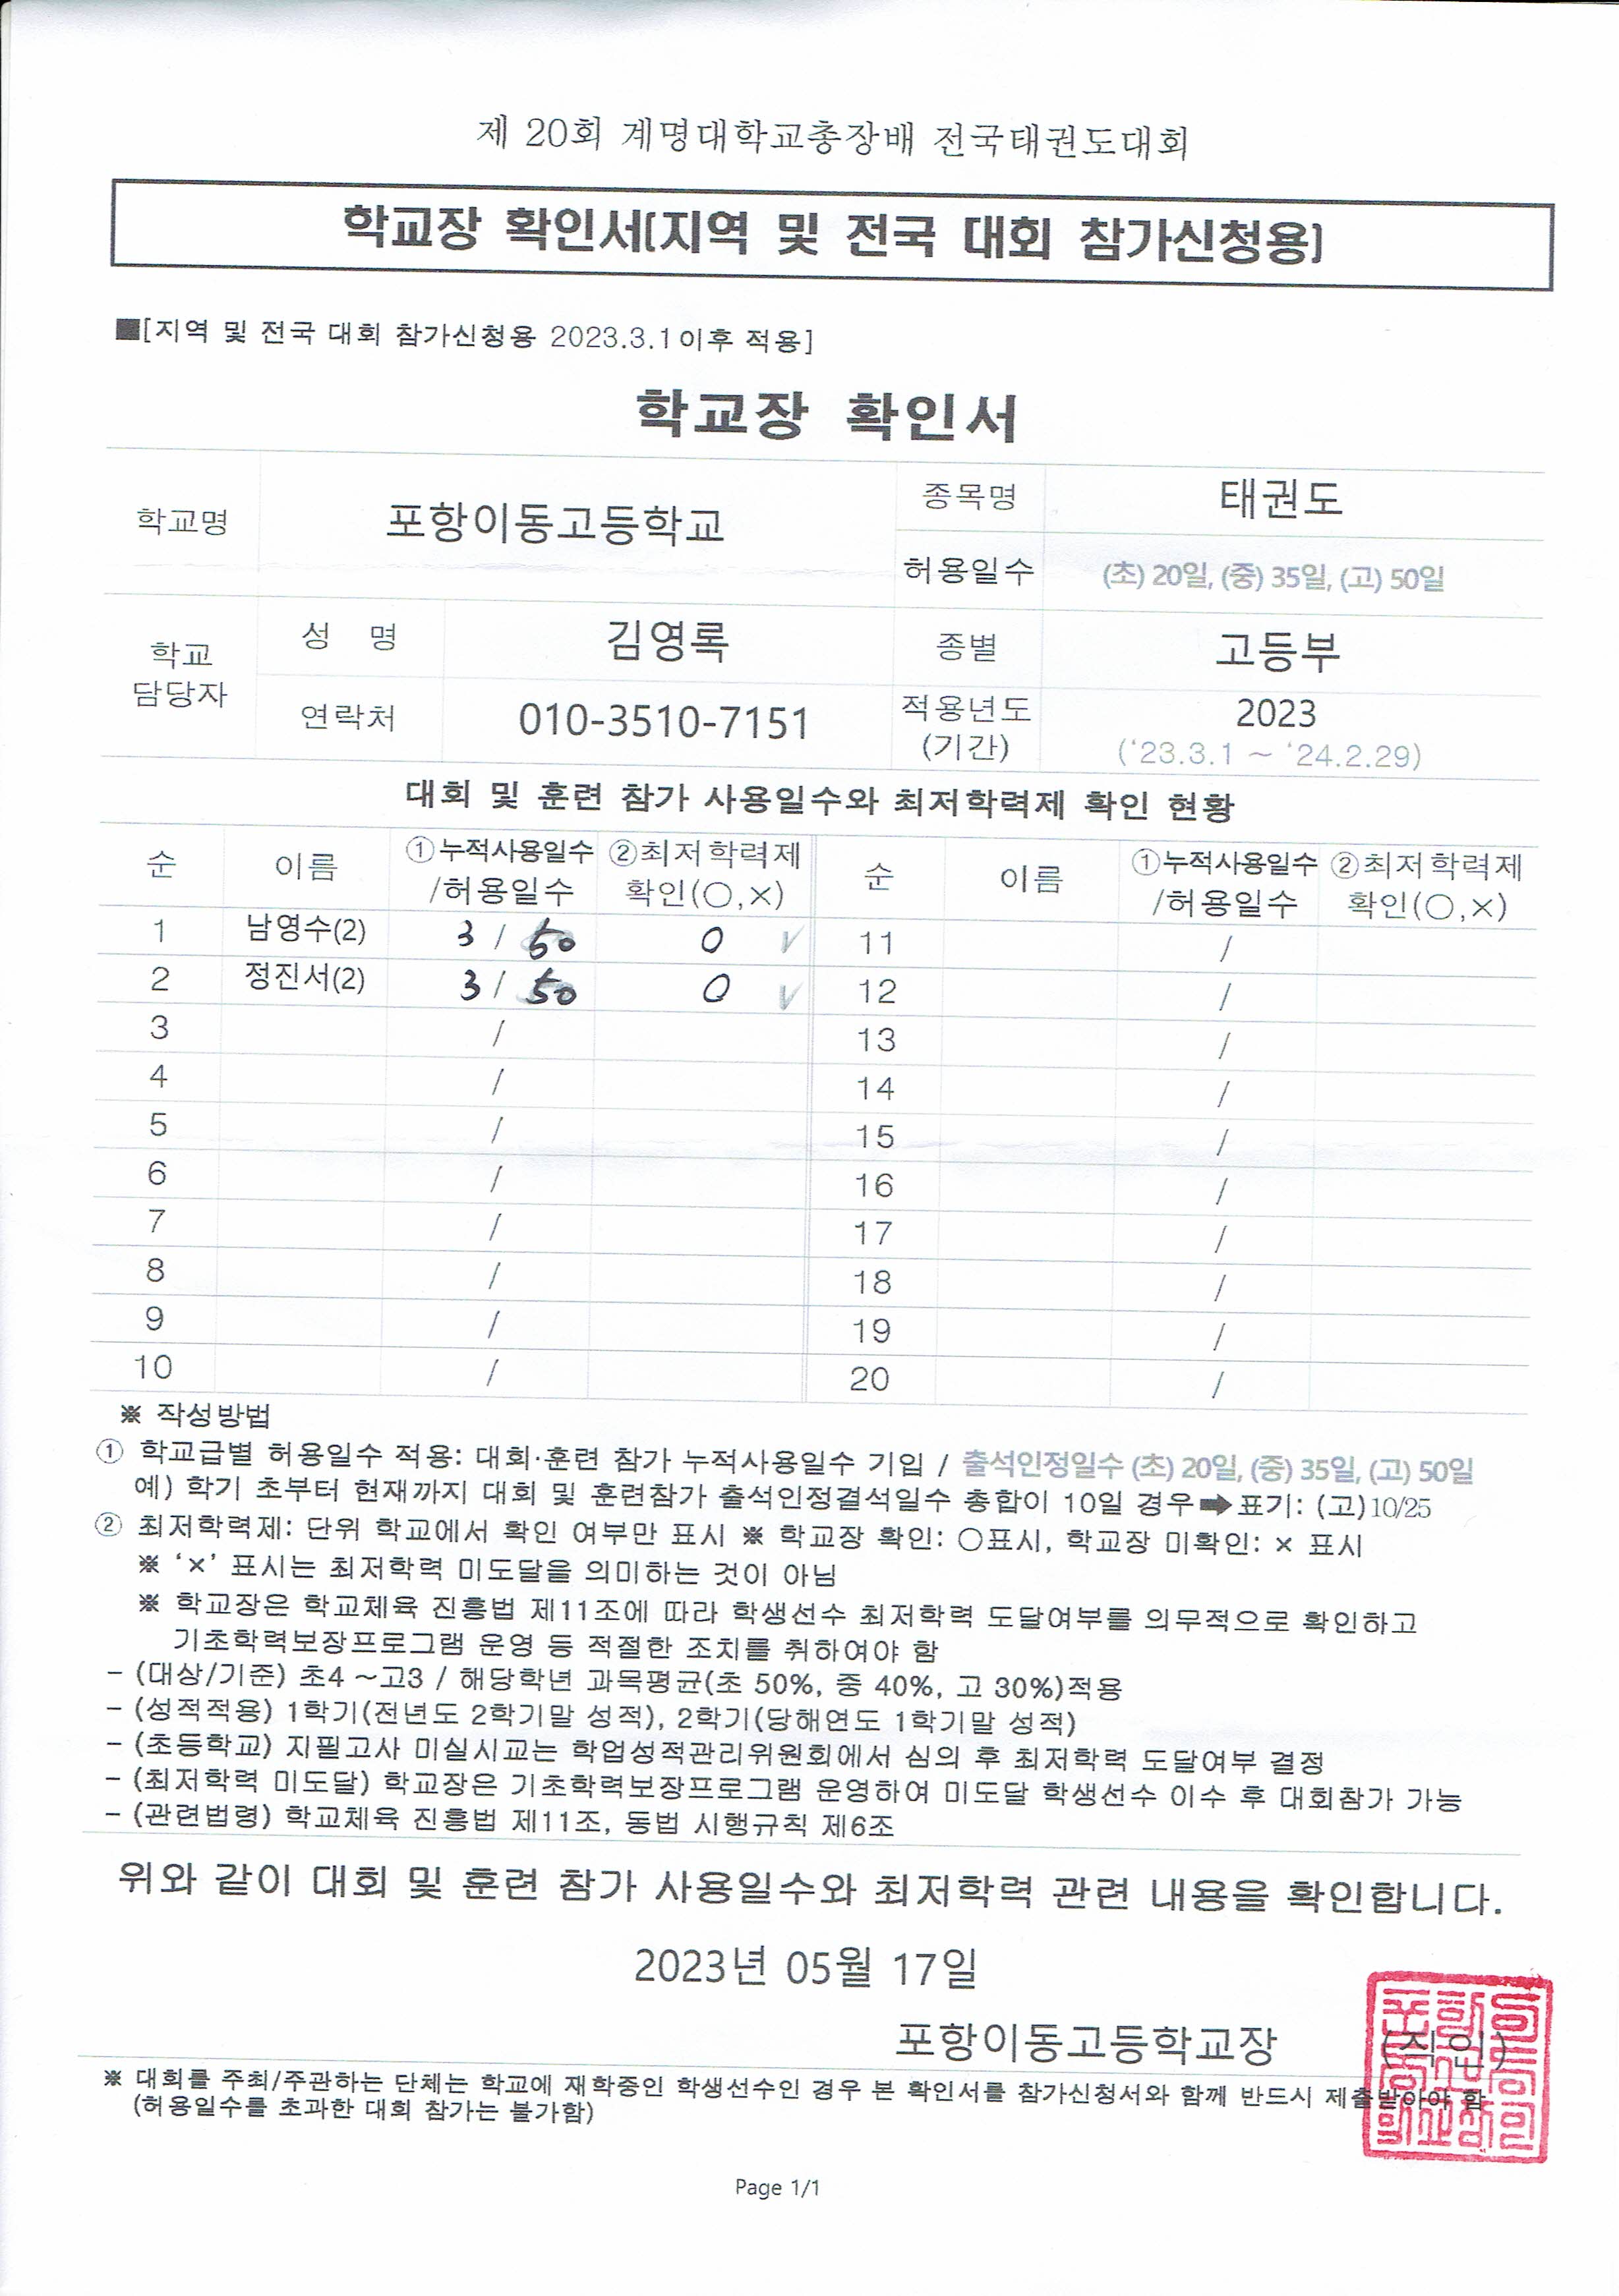 제 20회 계명대학교총장배 전국태권도대회
학교장 확인서(지역 및 전국 대회 참가신청용)
■[지역 및 전국 대회 참가신청용 2023.3.1이후 적용]
학교장 확인서
학교명 포항이동고등학교 종목명 태권도
허용일수 (초) 20일, (중) 35일, (고) 50일
학교 담당자 성 명 김영록 종별 고등부
연락처 010-3510-7151 적용년도 (기간) 2023 ('23.3.1 ~ '24.2.29)
대회 및 훈련 참가 사용일수와 최저학력제 확인 현황
순 이름 ①누적사용일수 /허용일수 ②최저학력제 확인(○,×) 순 이름 ①누적사용일수 /허용일수 ②최저학력제 확인(○,×)
1 남영수(2) 3 / 50 O V 11 /
2 정진서(2) 3 / 50 O V 12 /
3 / 13 /
4 / 14 /
5 / 15 /
6 / 16 /
7 / 17 /
8 / 18 /
9 / 19 /
10 / 20 /
※ 작성방법
① 학교급별 허용일수 적용: 대회·훈련 참가 누적사용일수 기입 / 출석인정일수 (초) 20일, (중) 35일, (고) 50일
예) 학기 초부터 현재까지 대회 및 훈련참가 출석인정결석일수 총합이 10일 경우➡표기: (고)10/25
② 최저학력제: 단위 학교에서 확인 여부만 표시 ※ 학교장 확인: ○표시, 학교장 미확인: × 표시
※ '×' 표시는 최저학력 미도달을 의미하는 것이 아님
※ 학교장은 학교체육 진흥법 제11조에 따라 학생선수 최저학력 도달여부를 의무적으로 확인하고
기초학력보장프로그램 운영 등 적절한 조치를 취하여야 함
- (대상/기준) 초4 ~고3 / 해당학년 과목평균(초 50%, 중 40%, 고 30%)적용
- (성적적용) 1학기(전년도 2학기말 성적), 2학기(당해연도 1학기말 성적)
- (초등학교) 지필고사 미실시교는 학업성적관리위원회에서 심의 후 최저학력 도달여부 결정
- (최저학력 미도달) 학교장은 기초학력보장프로그램 운영하여 미도달 학생선수 이수 후 대회참가 가능
- (관련법령) 학교체육 진흥법 제11조, 동법 시행규칙 제6조
위와 같이 대회 및 훈련 참가 사용일수와 최저학력 관련 내용을 확인합니다.
2023년 05월 17일
포항이동고등학교장 (직인)
※ 대회를 주최/주관하는 단체는 학교에 재학중인 학생선수인 경우 본 확인서를 참가신청서와 함께 반드시 제출받아야 함
(허용일수를 초과한 대회 참가는 불가함)
Page 1/1